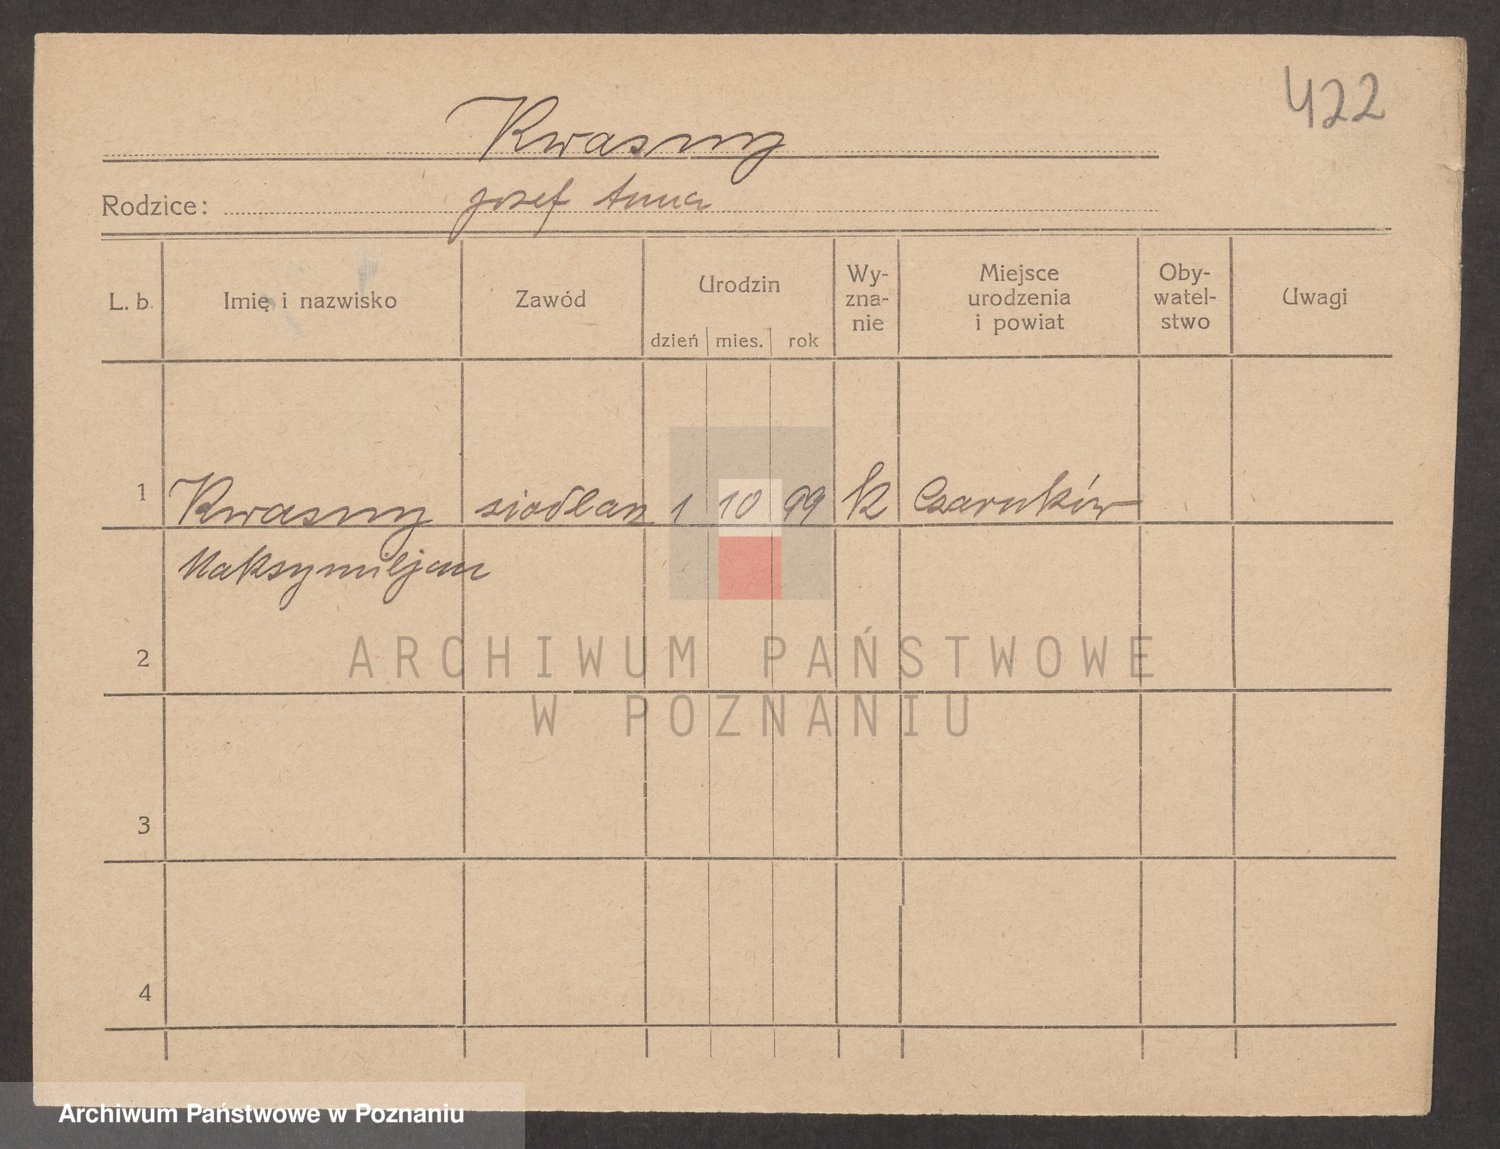 422
Kwasny
Rodzice: Josef Anna
L. b. Imię i nazwisko Zawód Urodzin dzień mies. rok Wy- zna- nie Miejsce urodzenia i powiat Oby- watel- stwo Uwagi
1 Kwasny siodlarz 1 10 99 k Czarnków
Maksymiljan
2
ARCHIWUM PAŃSTWOWE
W POZNANIU
3
4
Archiwum Państwowe w Poznaniu